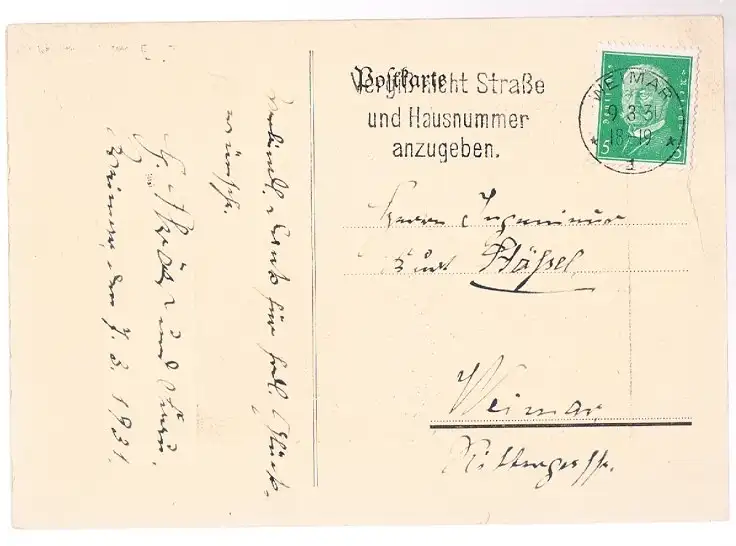 Herzl. Dank für frdl. Glück-
wünsche.
und Frau.
Weimar, den 7.3.1931.
Postkarte
Vergiß nicht Straße
und Hausnummer
anzugeben.
WEIMAR
9.3.31
18-19
5 5
Herrn Ingenieur
Kurt
Weimar
Rittergasse.